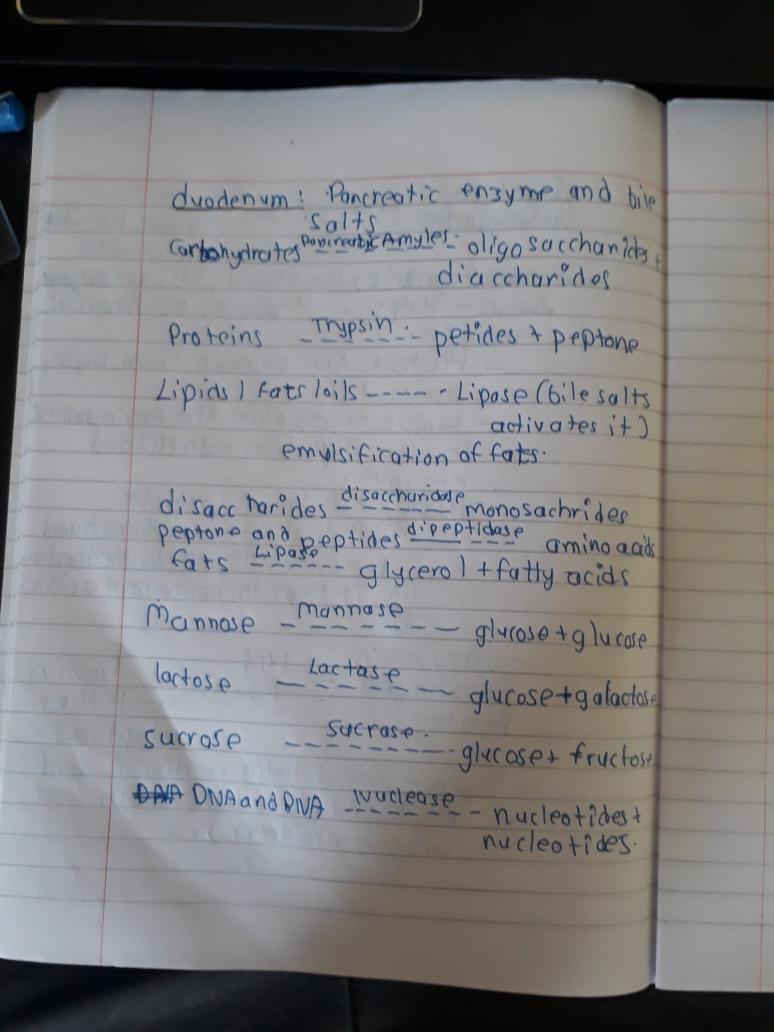 duodenum: Pancreatic enzyme and bile
salts
Carbohydrates Pancreatic Amyles. oligosaccharides +
diaccharides
Proteins ---Trypsin.--- petides + peptone
Lipids / Fats / oils ----- . Lipase (bile salts
activates it)
emulsification of fats.
disaccharides disaccharidase monosachrides
peptone and peptides dipeptidase amino acids
fats Lipase glycerol + fatty acids
Mannose Mannase glucose + glucose
lactose Lactase glucose + galactose
sucrose Sucrase. glucose + fructose
DNA DNA and DNA Nuclease nucleotides +
nucleotides.